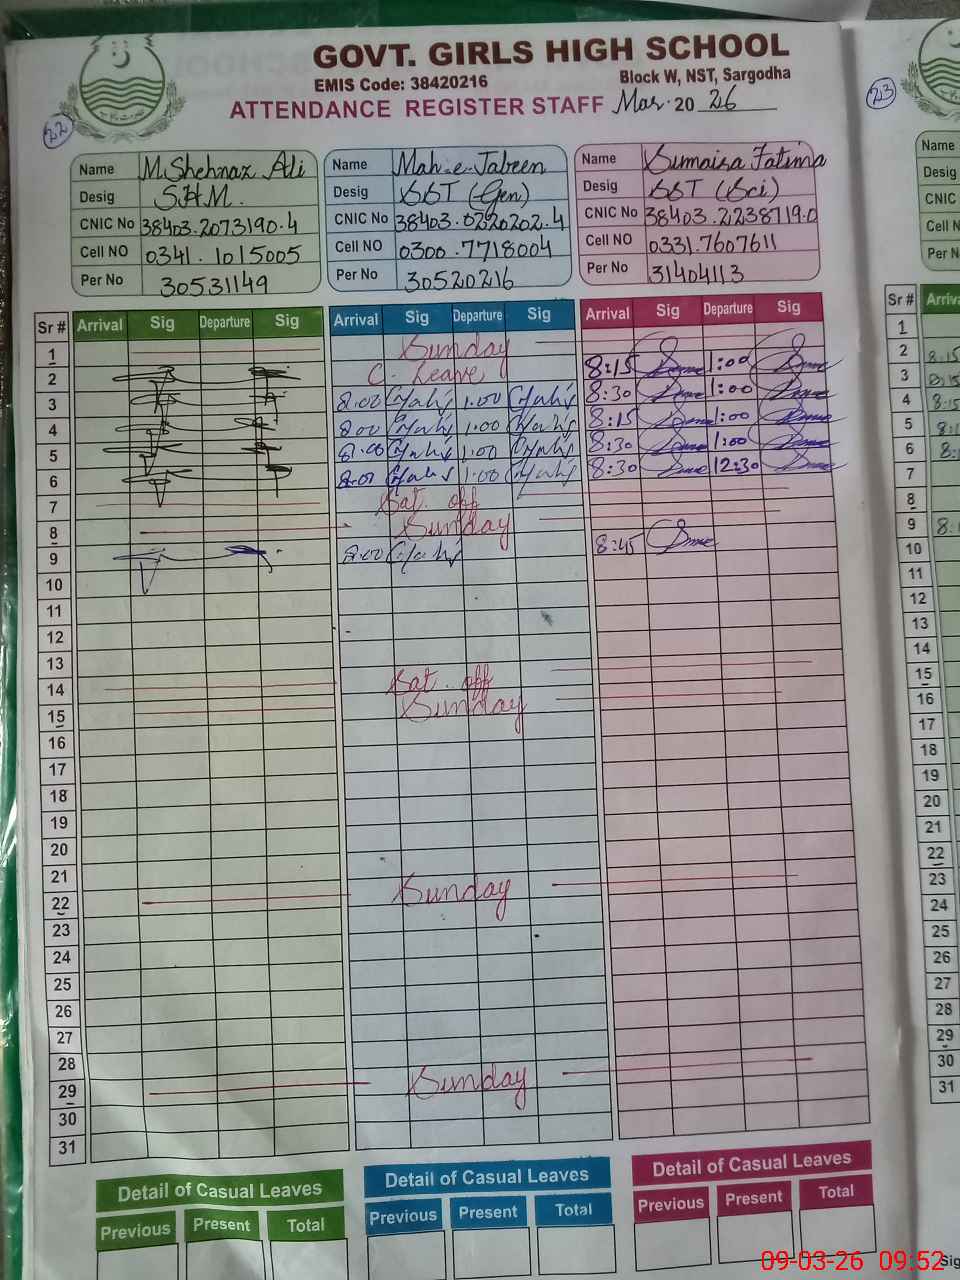 GOVT. GIRLS HIGH SCHOOL
EMIS Code: 38420216 Block W, NST, Sargodha
ATTENDANCE REGISTER STAFF Mar. 2026
22
23
Name M.Shehnaz Ali
Desig S.H.M.
CNIC No 38403.2073190.4
Cell NO 0341.1015005
Per No 30531149
Name Mah-e-Jabeen
Desig SST (Gen)
CNIC No 38403.0220202.4
Cell NO 0300.7718004
Per No 30520216
Name Sumaira Fatima
Desig SST (Sci)
CNIC No 38403.2238719.0
Cell NO 0331.7607611
Per No 31404113
Name
Desig
CNIC
Cell N
Per No
Sr # Arrival Sig Departure Sig Arrival Sig Departure Sig Arrival Sig Departure Sig Sr # Arriva
1 Sunday 1
2 C. Leave 8:15 1:00 2 8:15
3 8.00 1.00 8:30 1:00 3 8:15
4 800 1.00 8:15 1:00 4 8:15
5 8.00 1.00 8:30 1:00 5
6 8.00 1.00 8:30 12:30 6
7 Sat. off 7
8 Sunday 8
9 8.00 8:45 9
10 10
11 11
12 12
13 13
14 Sat. off 14
15 Sunday 15
16 16
17 17
18 18
19 19
20 20
21 21
22 Sunday 22
23 23
24 24
25 25
26 26
27 27
28 28
29 Sunday 29
30 30
31 31
Detail of Casual Leaves Detail of Casual Leaves Detail of Casual Leaves
Previous Present Total Previous Present Total Previous Present Total
09-03-26 09:52
Sig